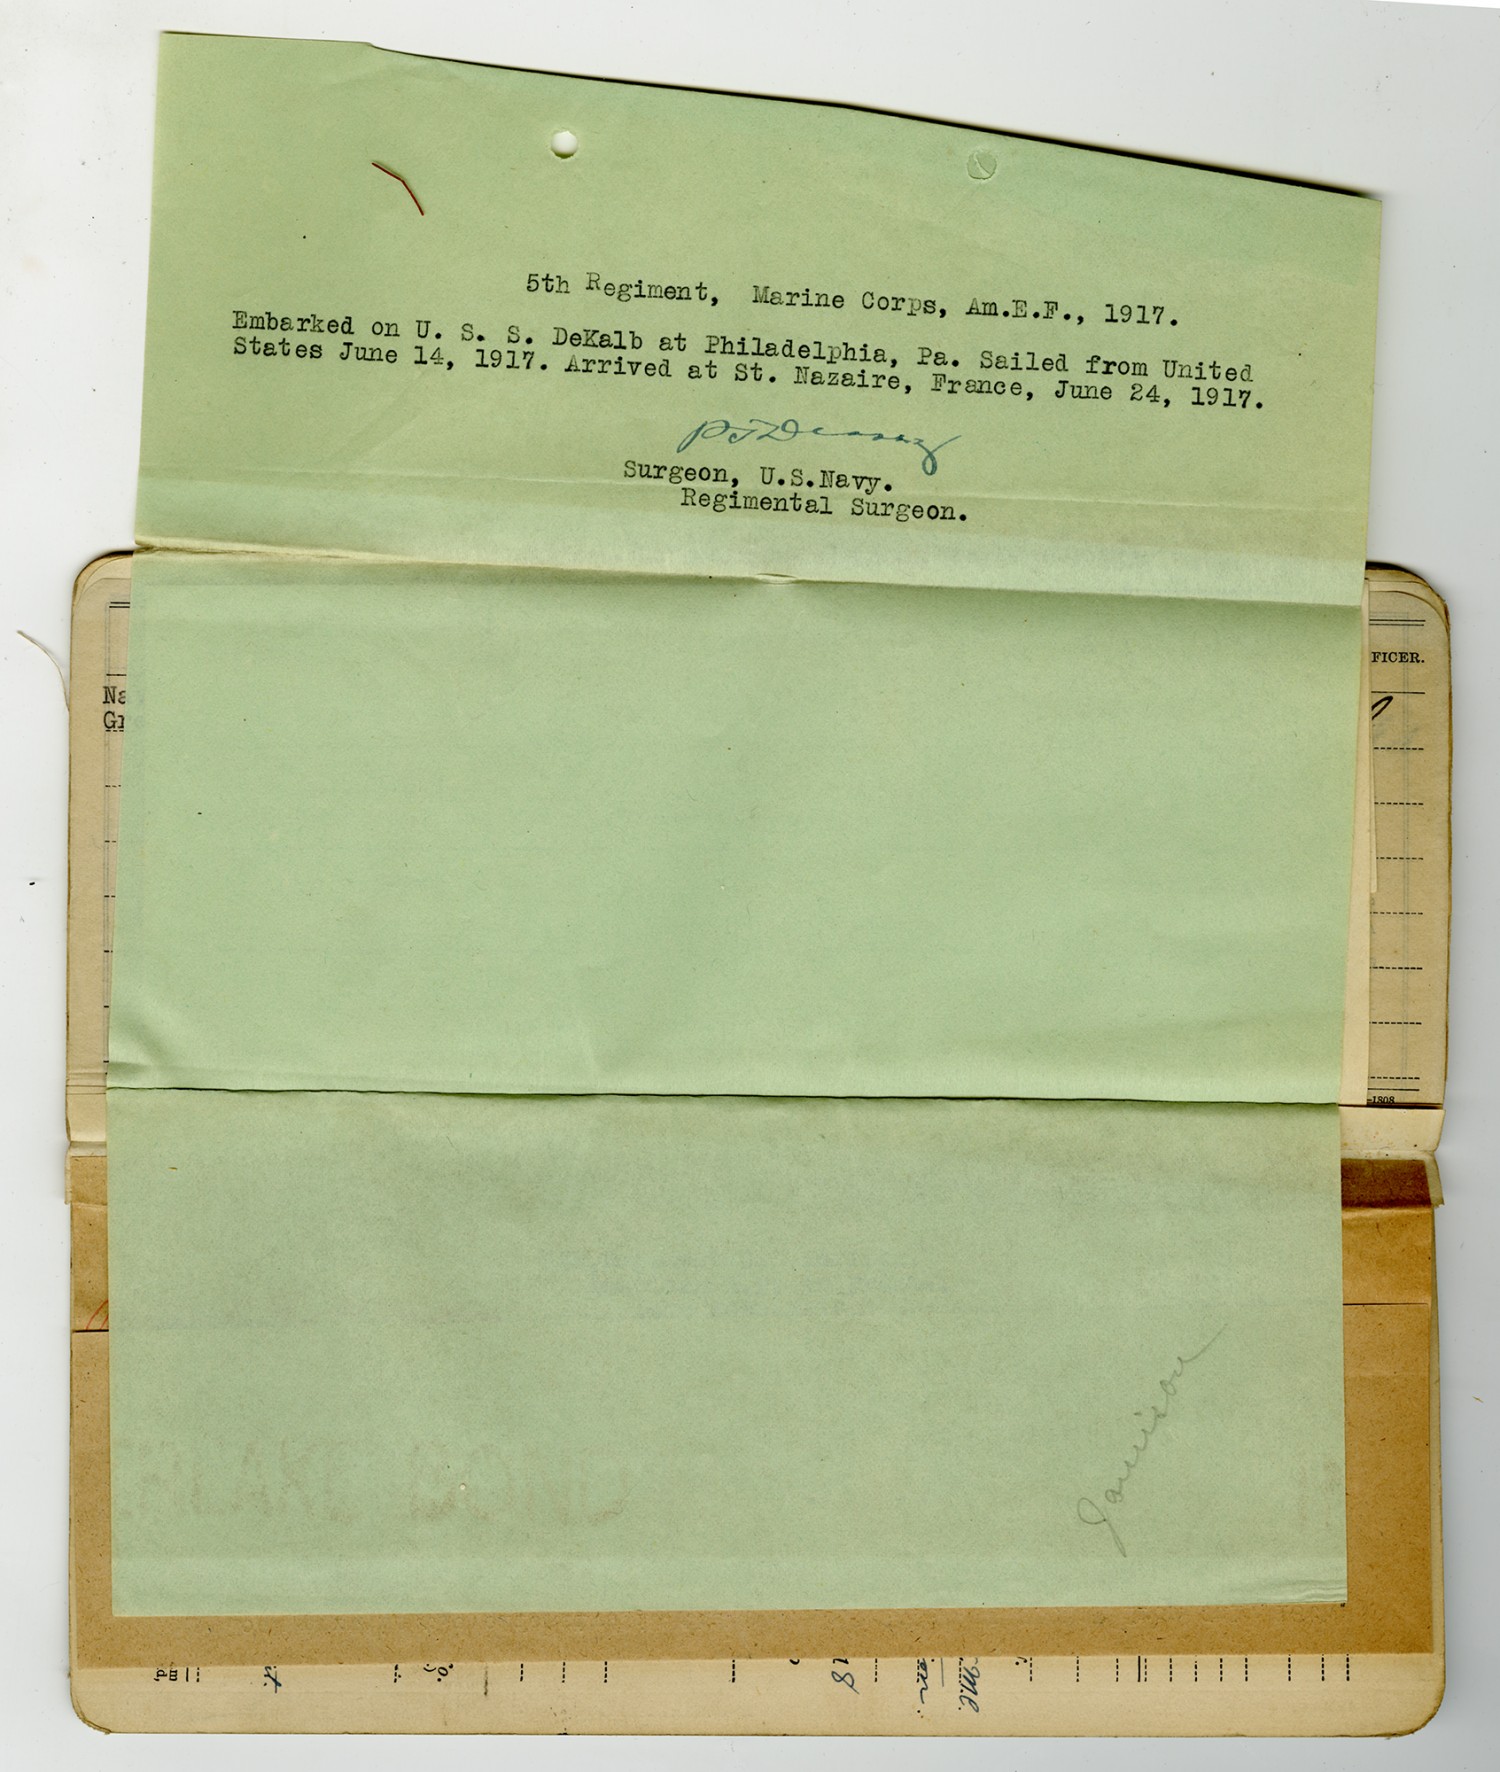 5th Regiment, Marine Corps, Am.E.F., 1917.
Embarked on U. S. S. DeKalb at Philadelphia, Pa. Sailed from United
States June 14, 1917. Arrived at St. Nazaire, France, June 24, 1917.
Surgeon, U.S.Navy.
Regimental Surgeon.
FICER.
Na
Gr
-1808
Jamison
18